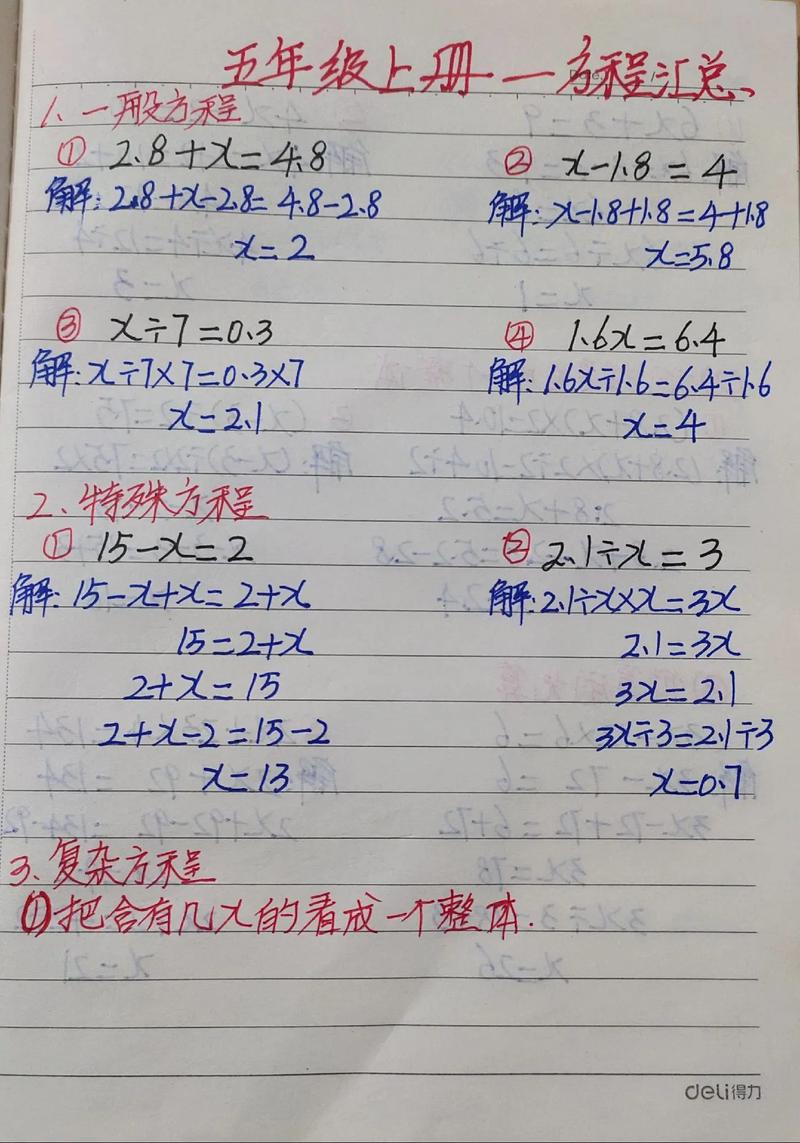 五年级上册—方程汇总、
1、一般方程
① 2.8+x=4.8
解:2.8+x-2.8=4.8-2.8
x=2
② x-1.8=4
解:x-1.8+1.8=4+1.8
x=5.8
③ x÷7=0.3
解:x÷7×7=0.3×7
x=2.1
④ 1.6x=6.4
解:1.6x÷1.6=6.4÷1.6
x=4
2、特殊方程
① 15-x=2
解:15-x+x=2+x
15=2+x
2+x=15
2+x-2=15-2
x=13
② 2.1÷x=3
解:2.1÷x×x=3x
2.1=3x
3x=2.1
3x÷3=2.1÷3
x=0.7
3、复杂方程
①把含有几x的看成一个整体.
deli得力